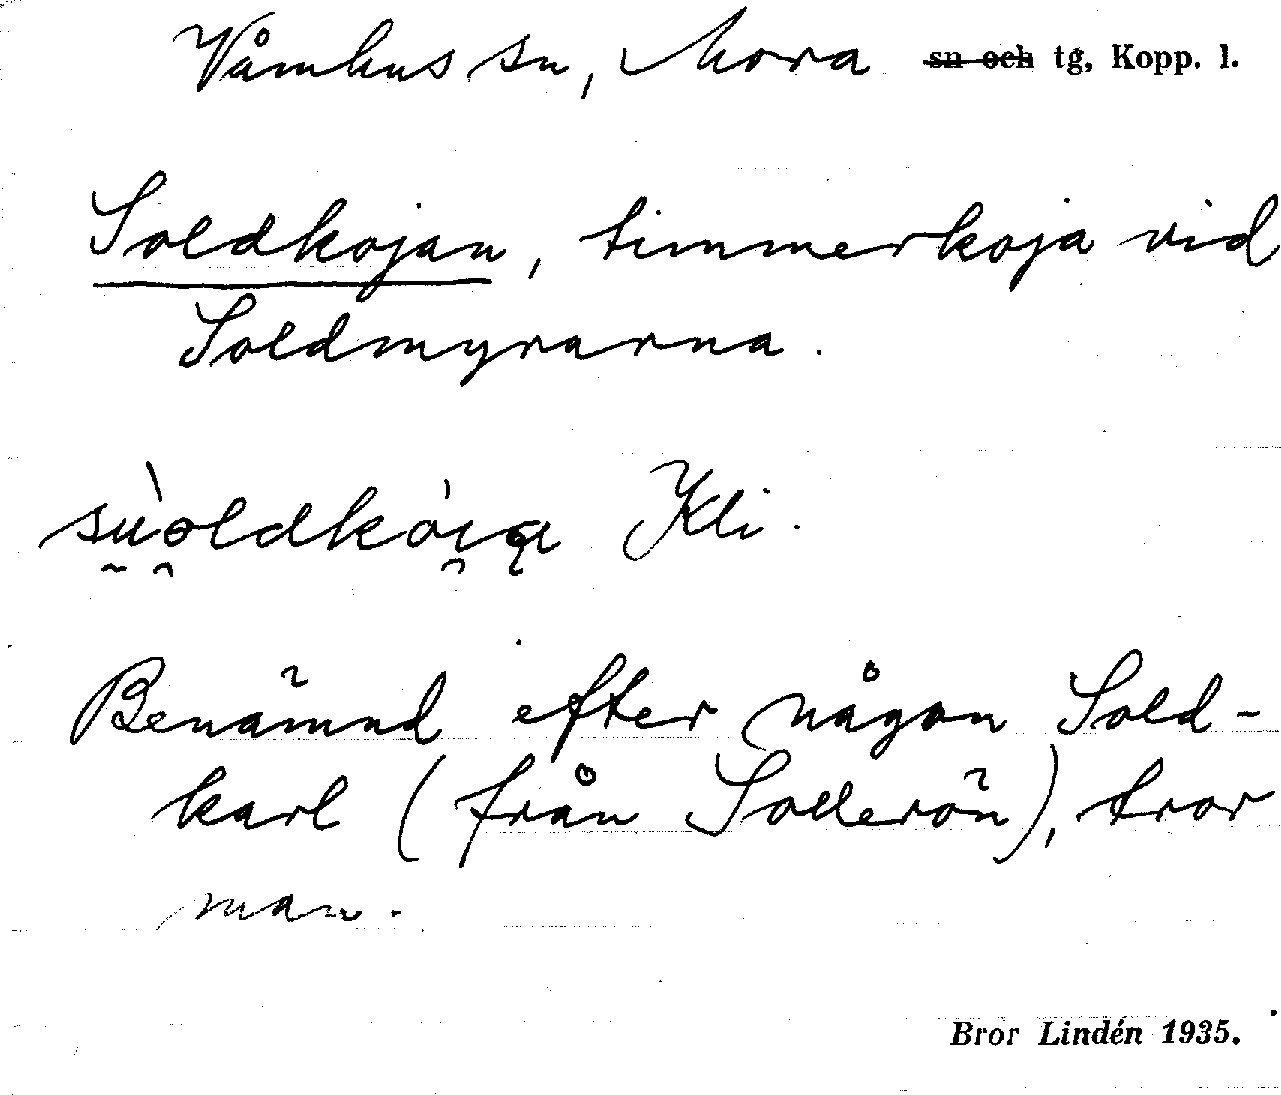 Våmhus sn, Mora sn och tg, Kopp. l.
Soldkojan, timmerkoja vid
Soldmyrarna.
Kli.
Benämnd efter någon Sold-
karl (från Sollerön), tror
man.
Bror Lindén 1935.